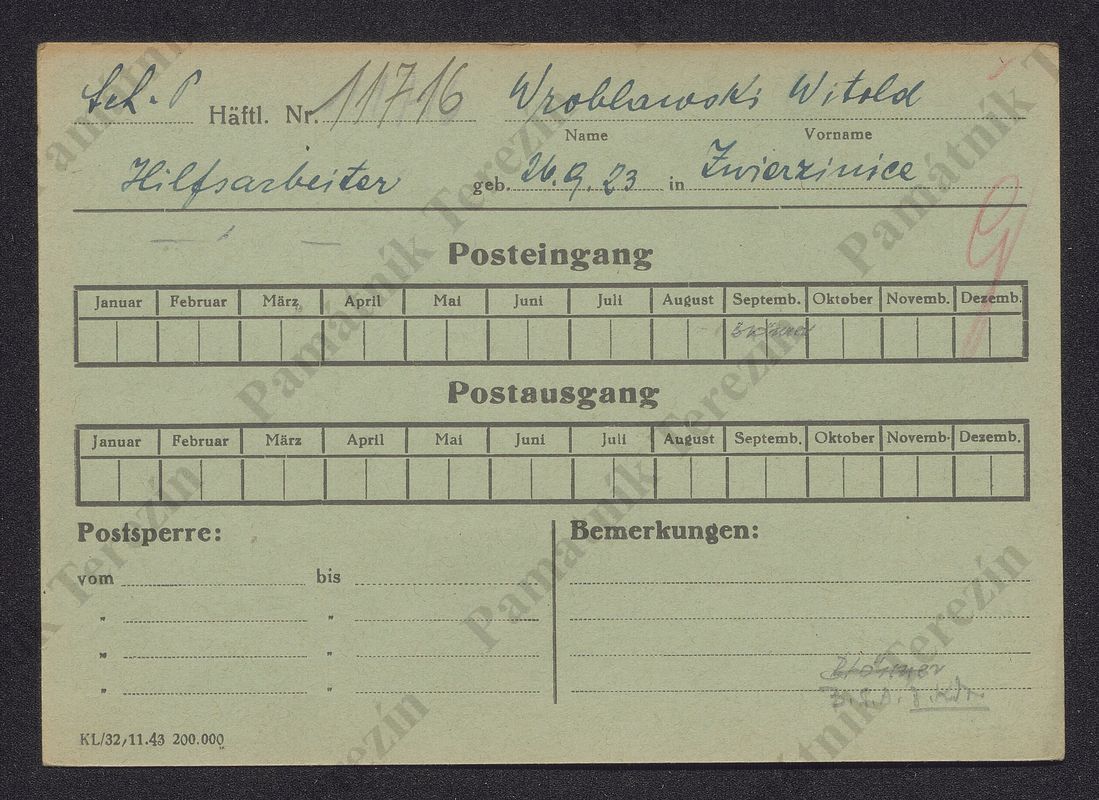 Sch. P Häftl. Nr. 11716 Wroblawski Witold
Name Vorname
Hilfsarbeiter geb. 26.9.23 in Zwierzinice
Posteingang
Januar Februar März April Mai Juni Juli August Septemb. Oktober Novemb. Dezemb.
Postausgang
Januar Februar März April Mai Juni Juli August Septemb. Oktober Novemb. Dezemb.
Postsperre: Bemerkungen:
vom bis
" "
" "
" "
KL/32, 11.43 200.000
Památník Terezín